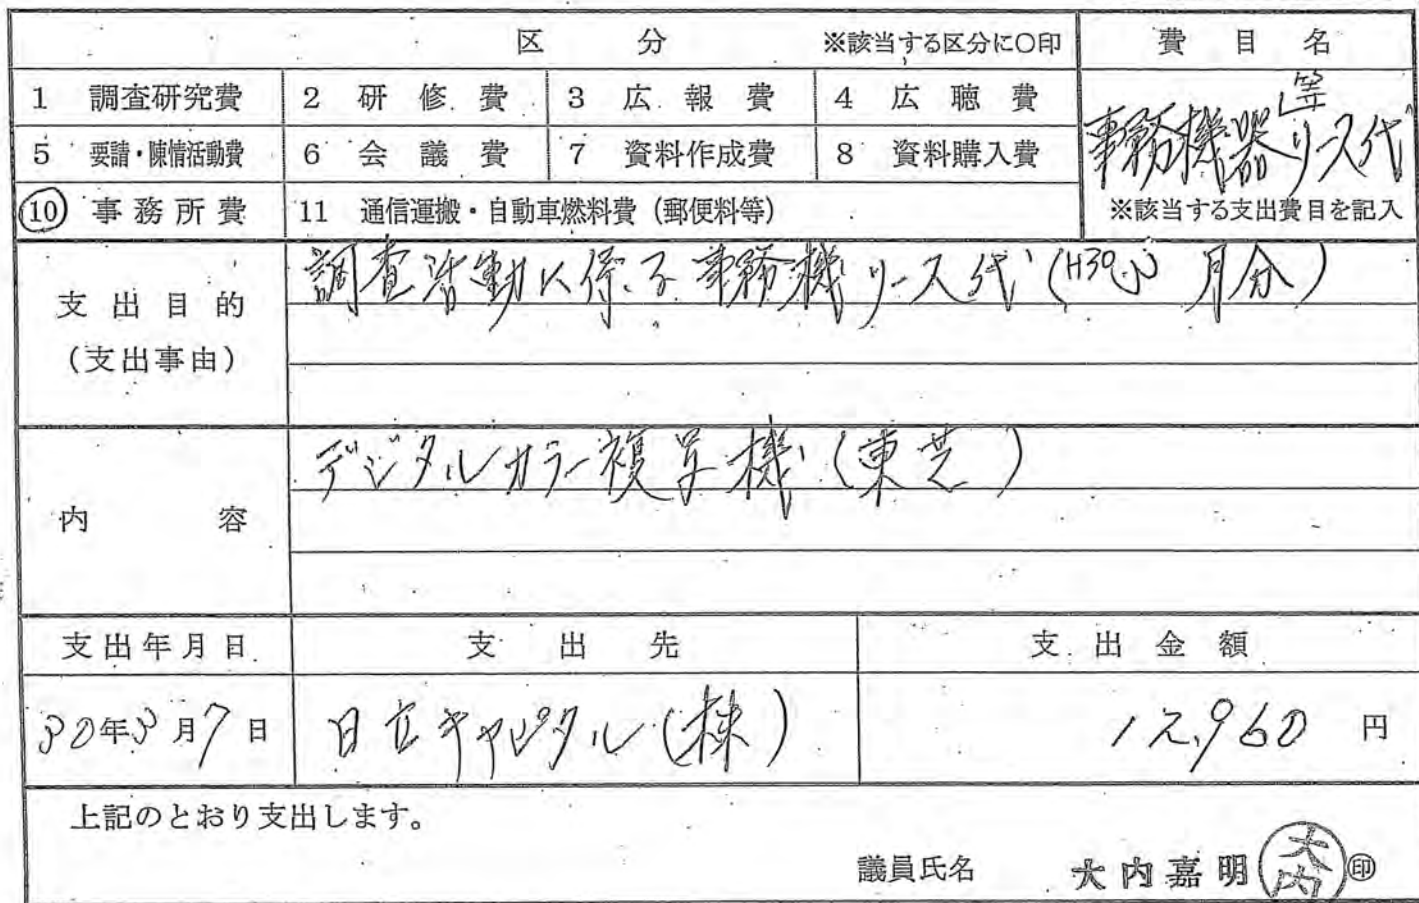 区 分 ※該当する区分に○印 費 目 名
1 調査研究費 2 研 修 費 3 広 報 費 4 広 聴 費
事務機器等リース代
5 要請・陳情活動費 6 会 議 費 7 資料作成費 8 資料購入費
10 事 務 所 費 11 通信運搬・自動車燃料費（郵便料等） ※該当する支出費目を記入
支 出 目 的
（支出事由）
調査活動に係る事務機リース代（H30.3 月分）
内 容
デジタルカラー複写機（東芝）
支出年月日 支 出 先 支 出 金 額
30年3月7日 日立キャピタル（株） 12,960 円
上記のとおり支出します。
議員氏名 大内嘉明 大内 印